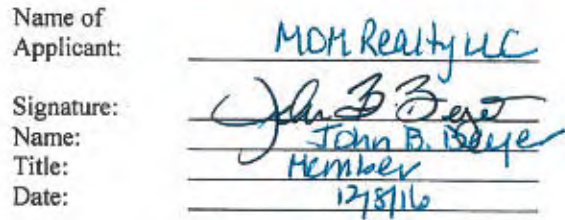 Name of
Applicant: MDM Realty LLC
Signature: John B. Beyer
Name: John B. Beyer
Title: Member
Date: 12/8/16